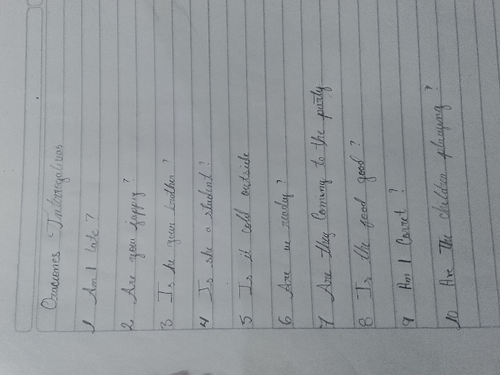 Oraciones Interrogativas
1 Am I late?
2 Are you happy?
3 Is he your brother?
4 Is she a student?
5 Is it cold outside
6 Are we ready?
7 Are they Coming to the party
8 Is the food good?
9 Am I Corret?
10 Are The children playing?